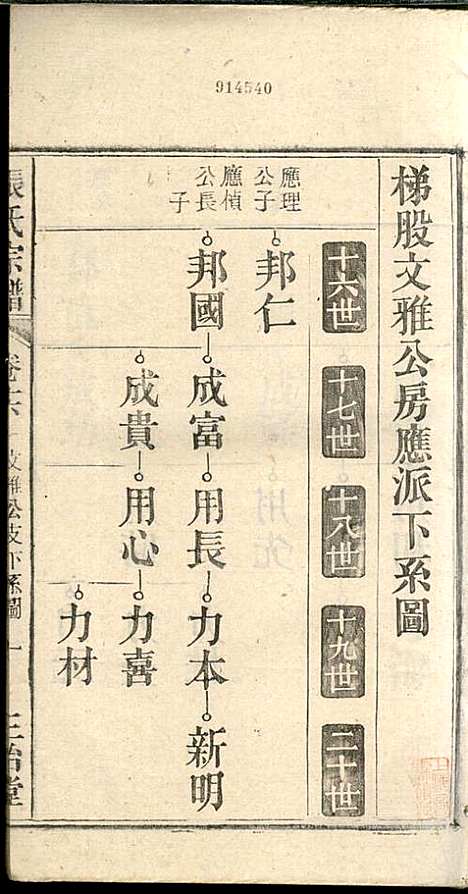 914540
梯股文雅公房應派下系圖
十六世
十七世
十八世
十九世
二十世
應理公子
邦仁
應楨公長子
邦國
成富
用長
力本
新明
成貴
用心
力喜
力材
張氏宗譜
卷六
文雅公支下系圖
一
三治堂